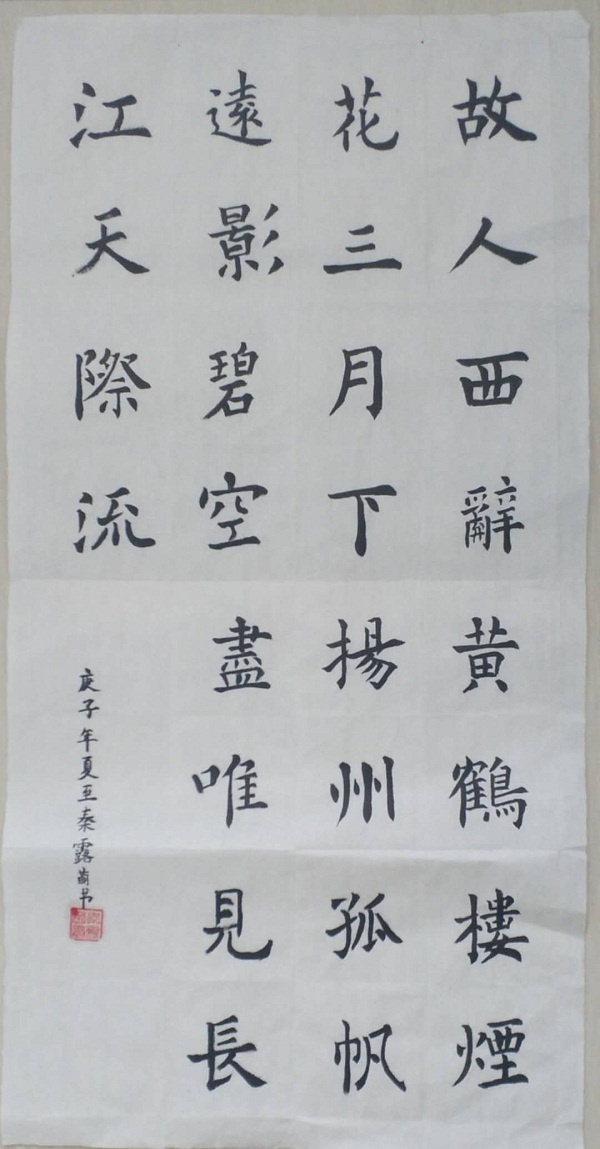 故人西辭黄鶴樓煙
花三月下揚州孤帆
遠影碧空盡唯見長
江天際流
庚子年夏至秦露萌书